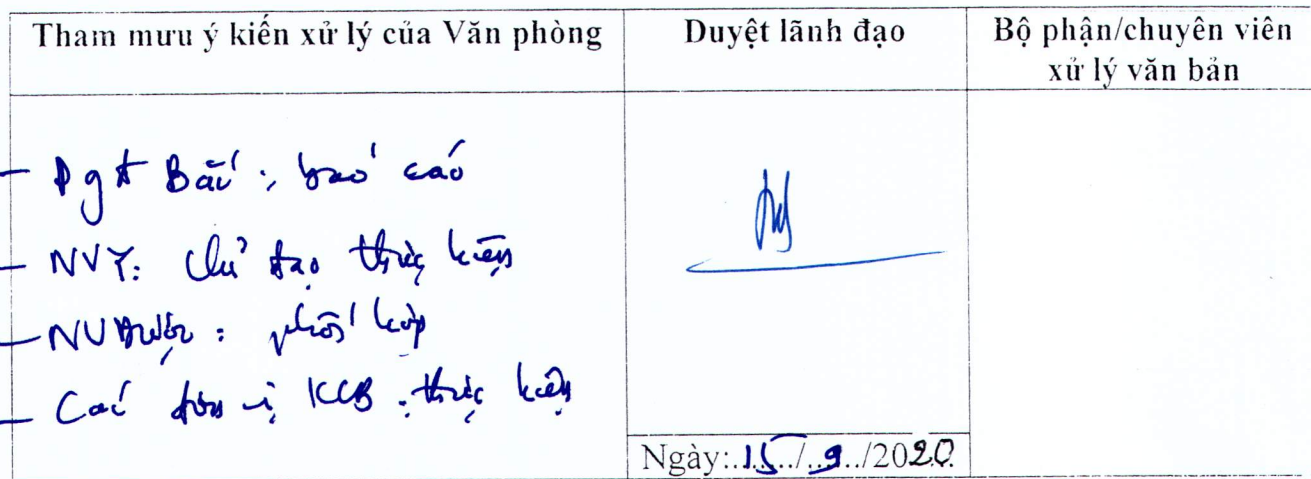 Tham mưu ý kiến xử lý của Văn phòng
Duyệt lãnh đạo
Bộ phận/chuyên viên
xử lý văn bản
- PgĐ Bắc: báo cáo
- NVY: Chỉ đạo thực hiện
- NVDược: phối hợp
- Các đơn vị KCB: thực hiện
Ngày:..15../..9../2020